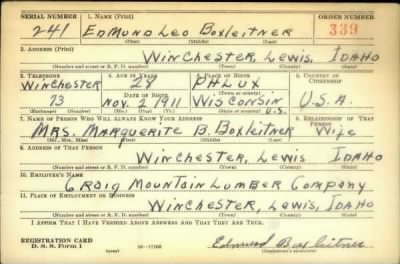 SERIAL NUMBER 1. NAME (Print) ORDER NUMBER
241 EDMUND LEO BOXLEITNER 339
(First) (Middle) (Last)
2. ADDRESS (Print)
WINCHESTER, LEWIS, IDAHO
(Number and street or R. F. D. number) (Town) (County) (State)
3. TELEPHONE 4. AGE IN YEARS 5. PLACE OF BIRTH 6. COUNTRY OF CITIZENSHIP
WINCHESTER 28 PHLUX
(Town or county)
DATE OF BIRTH
73 NOV. 2 1911 WISCONSIN U.S. U.S.A.
(Exchange) (Number) (Mo.) (Day) (Yr.) (State or country)
7. NAME OF PERSON WHO WILL ALWAYS KNOW YOUR ADDRESS 8. RELATIONSHIP OF THAT PERSON
MRS. MARGUERITE B. BOXLEITNER WIFE
(Mr., Mrs., Miss) (First) (Middle) (Last)
9. ADDRESS OF THAT PERSON
WINCHESTER, LEWIS IDAHO
(Number and street or R. F. D. number) (Town) (County) (State)
10. EMPLOYER'S NAME
CRAIG MOUNTAIN LUMBER COMPANY
11. PLACE OF EMPLOYMENT OR BUSINESS
WINCHESTER, LEWIS, IDAHO
(Number and street or R. F. D. number) (Town) (County) (State)
I AFFIRM THAT I HAVE VERIFIED ABOVE ANSWERS AND THAT THEY ARE TRUE.
REGISTRATION CARD
D. S. S. Form 1 (over) Edmund Boxleitner
(Registrant's signature)